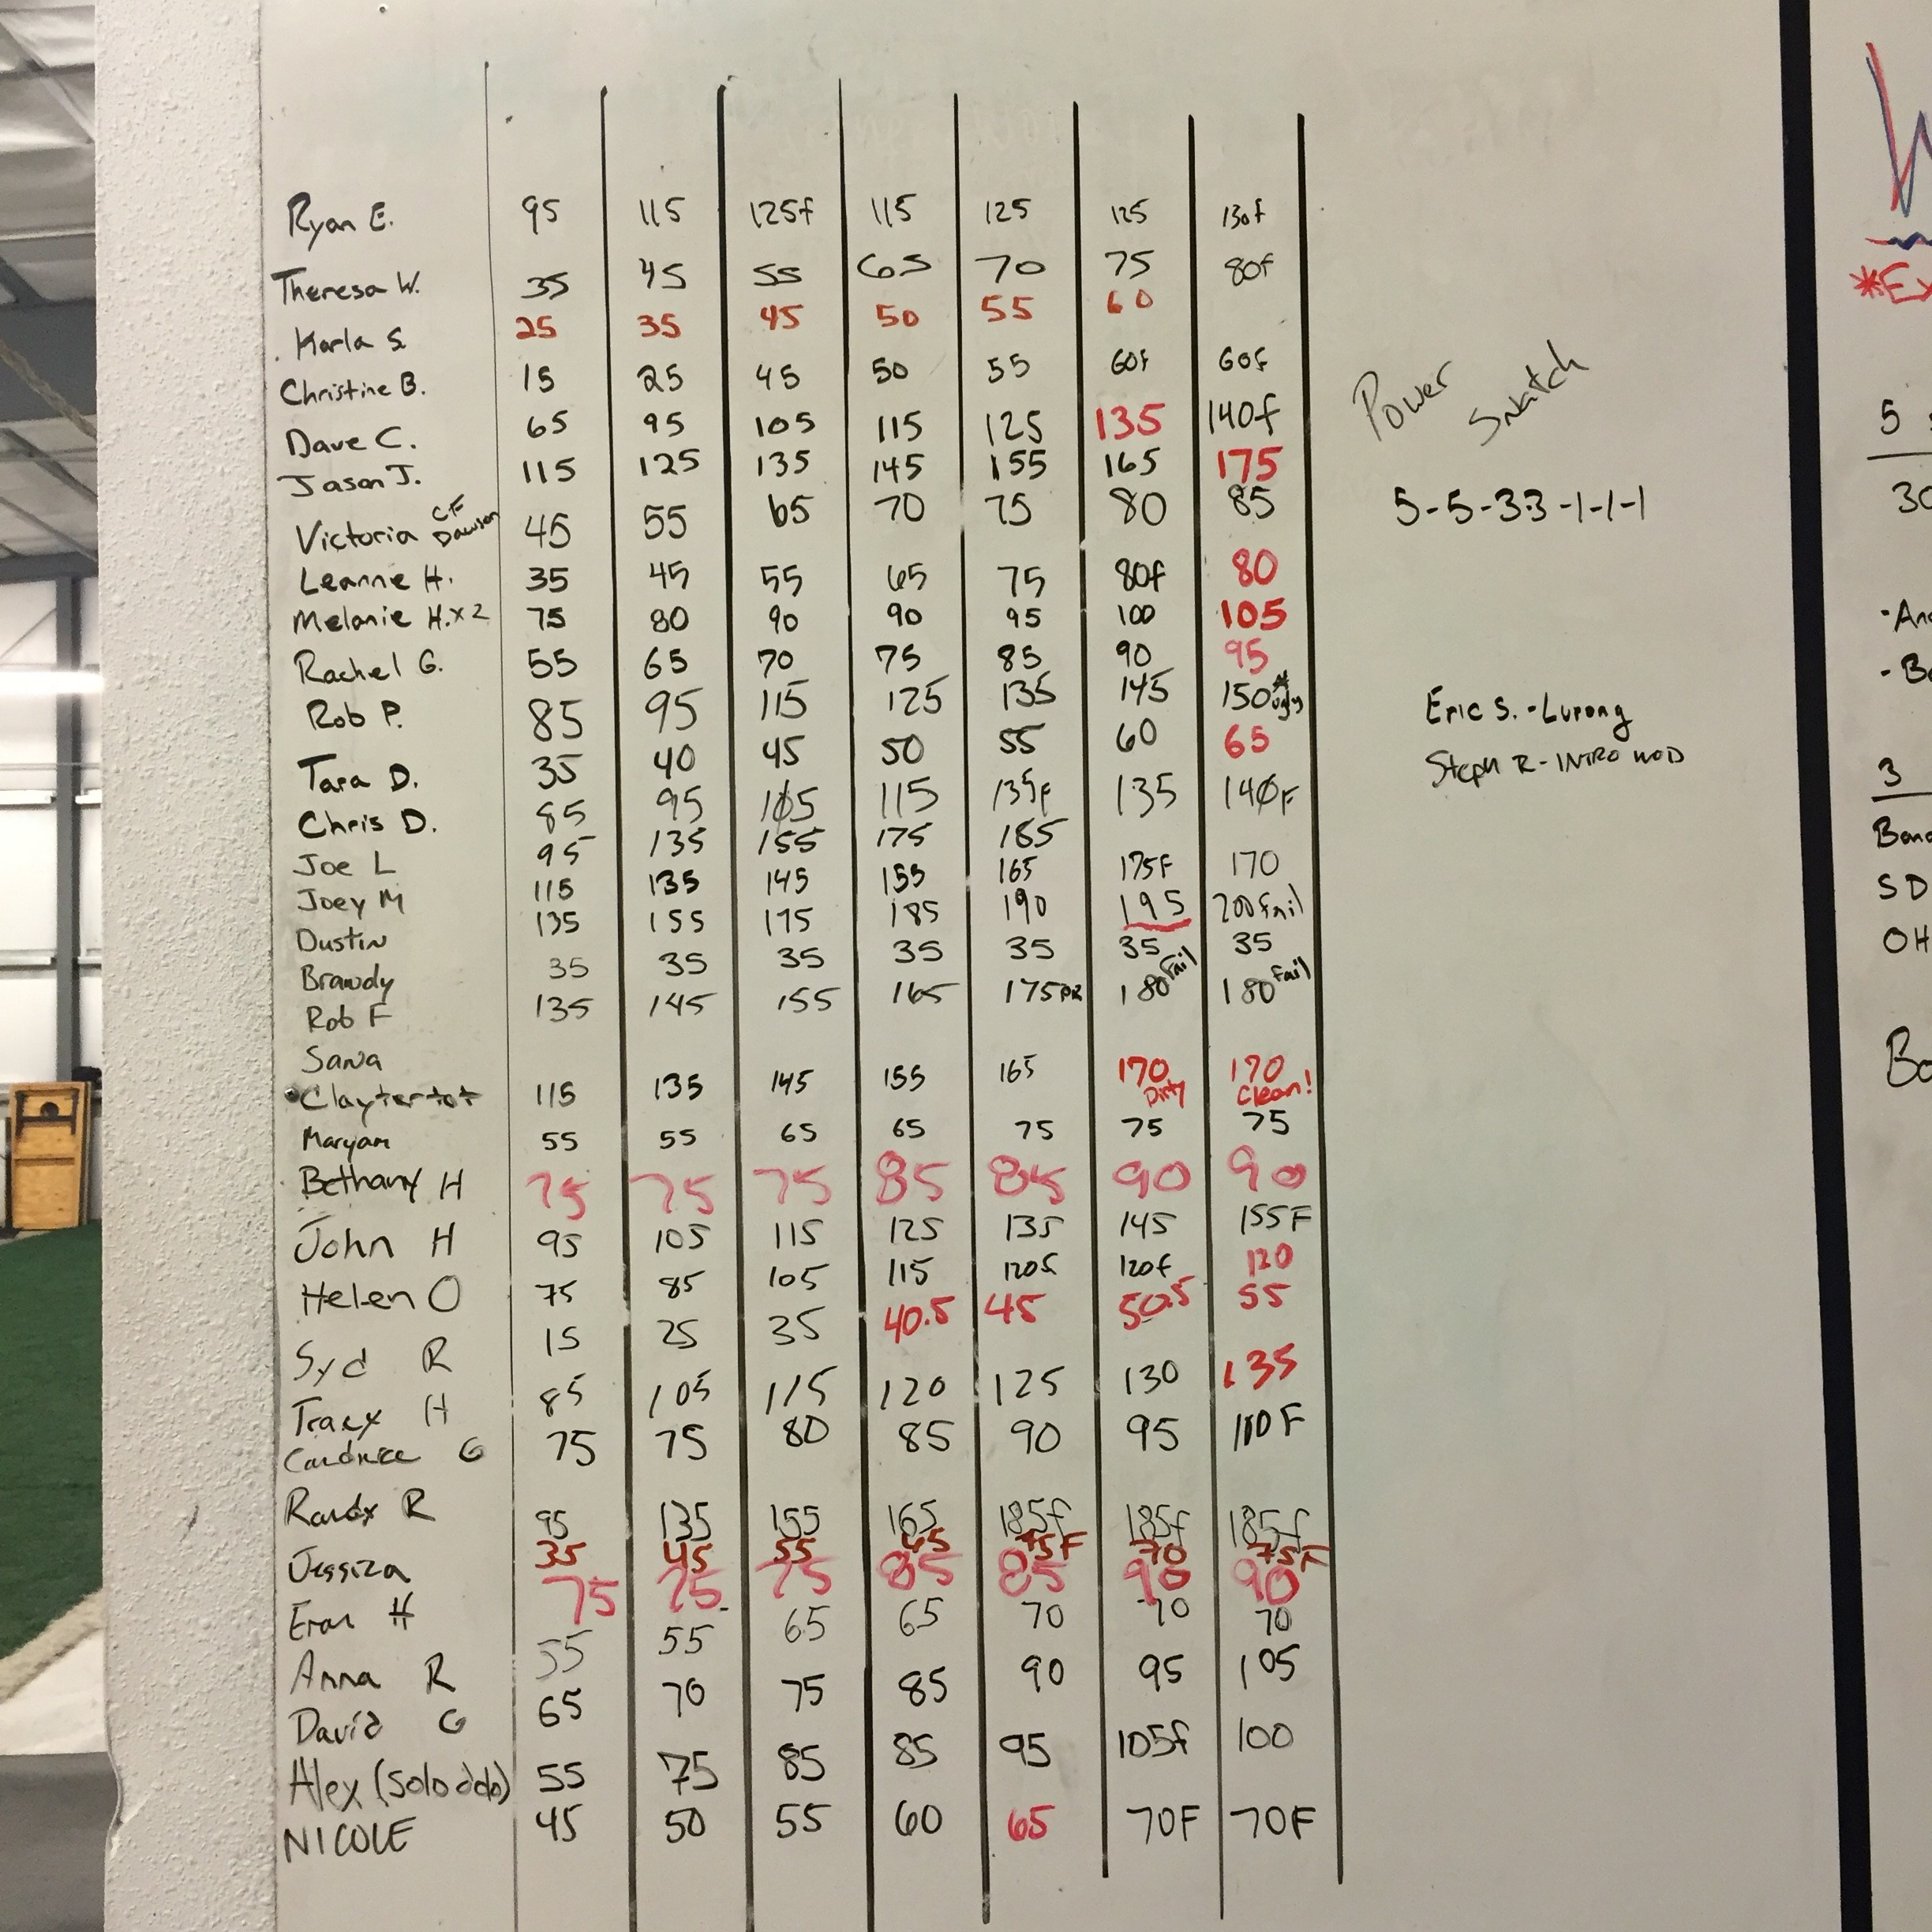 Ryan E. 95 115 125f 115 125 125 130f
Theresa W. 35 45 55 65 70 75 80f
Karla S. 25 35 45 50 55 60
Christine B. 15 25 45 50 55 60f 60f
Dave C. 65 95 105 115 125 135 140f
Jason J. 115 125 135 145 155 165 175
Victoria CF Dawson 45 55 65 70 75 80 85
Leanne H. 35 45 55 65 75 80f 80
Melanie H. x2 75 80 90 90 95 100 105
Rachel G. 55 65 70 75 85 90 95
Rob P. 85 95 115 125 135 145 150 *ugly
Tara D. 35 40 45 50 55 60 65
Chris D. 85 95 105 115 135f 135 140F
Joe L 95 135 155 175 185
Joey M 115 135 145 155 165 175F 170
Dustin 135 155 175 185 190 195 200 fail
Brawdy 35 35 35 35 35 35 35
Rob F 135 145 155 165 175 PR 180 Fail 180 Fail
Sana
Claytertot 115 135 145 155 165 170 Dirty 170 Clean!
Maryam 55 55 65 65 75 75 75
Bethany H 75 75 75 85 85 90 90
John H 95 105 115 125 135 145 155F
Helen O 75 85 105 115 120f 120f 120
Syd R 15 25 35 40.5 45 50.5 55
Tracy H 85 105 115 120 125 130 135
Candace G 75 75 80 85 90 95 F
Randy R 95 135 155 165 185f 185f 185f
Jessica 35 45 55 75F 70 75F
Eran H 75 75 75 85 85 90 90
Anna R 55 55 65 65 70 70 70
David G 65 70 75 85 90 95 105
Alex (solo dolo) 55 75 85 85 95 105f 100
NICOLE 45 50 55 60 65 70F 70F
Power Snatch
5-5-3-3-1-1-1
Eric S. - Lurong
Steph R - INTRO WOD
W
*Ex
5
30
3
Band
SD
OH